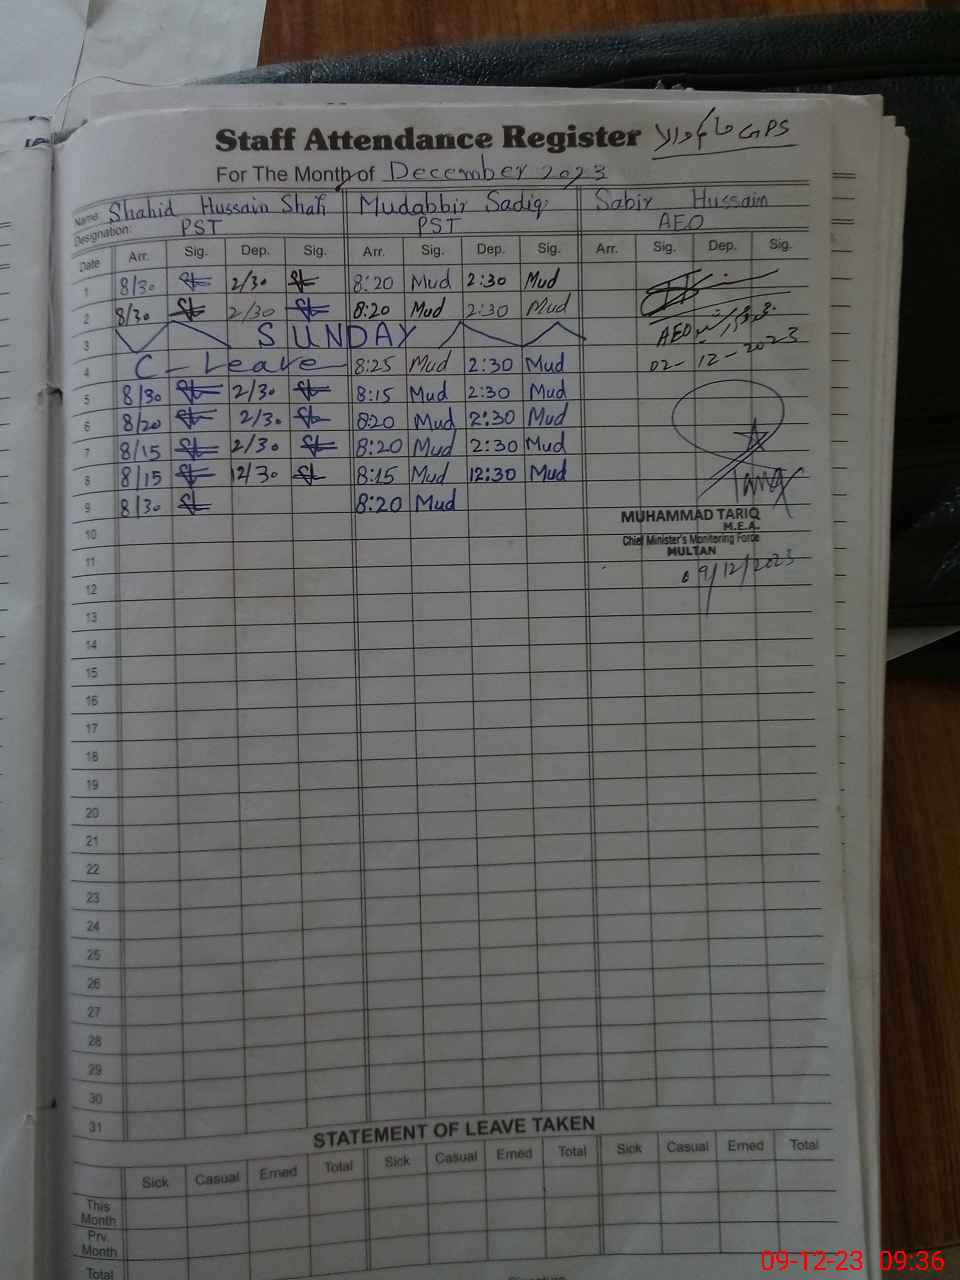 Staff Attendance Register GPS
For The Month of December 2023
Name: Shahid Hussain Shah Mudabbir Sadiq Sabir Hussain
Designation: PST PST AEO
Date Arr. Sig. Dep. Sig. Arr. Sig. Dep. Sig. Arr. Sig. Dep. Sig.
1 8/30 2/30 8:20 Mud 2:30 Mud
2 8/30 2/30 8:20 Mud 2:30 Mud
AEO
3 SUNDAY
02-12-2023
4 C-Leave 8:25 Mud 2:30 Mud
5 8/30 2/30 8:15 Mud 2:30 Mud
6 8/20 2/30 8:20 Mud 2:30 Mud
7 8/15 2/30 8:20 Mud 2:30 Mud
8 8/15 12/30 8:15 Mud 12:30 Mud
Tariq
9 8/30 8:20 Mud
MUHAMMAD TARIQ
M.E.A.
10
Chief Minister's Monitoring Force
MULTAN
11
09/12/2023
12
13
14
15
16
17
18
19
20
21
22
23
24
25
26
27
28
29
30
31
STATEMENT OF LEAVE TAKEN
Sick Casual Erned Total Sick Casual Erned Total Sick Casual Erned Total
This
Month
Prv.
Month
Total
Signature
09-12-23 09:36